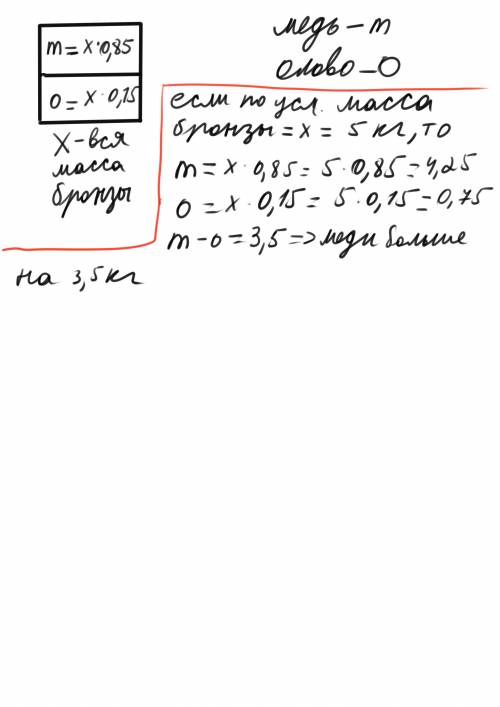 медь – m
олово – О
m = x · 0,85
о = x · 0,15
X – вся
масса
бронзы
если по усл. масса
бронзы = x = 5 кг, то
m = x · 0,85 = 5 · 0,85 = 4,25
о = x · 0,15 = 5 · 0,15 = 0,75
m – о = 3,5 => меди больше
на 3,5 кг